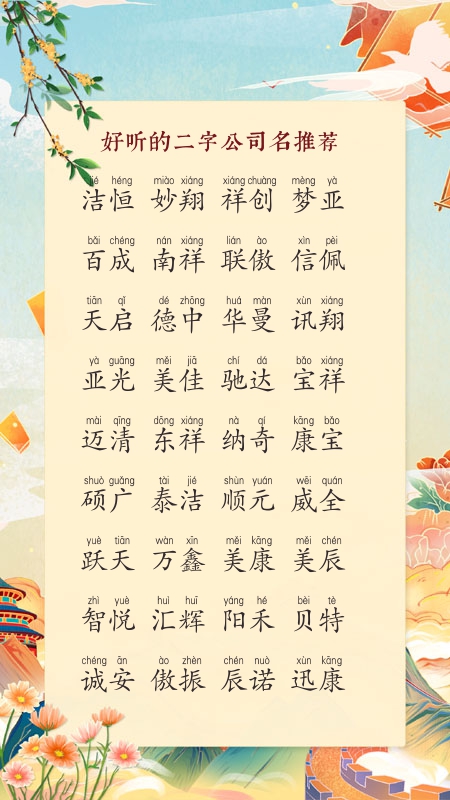 好听的二字公司名推荐
jié héng miào xiáng xiáng chuàng mèng yà
洁恒 妙翔 祥创 梦亚
bǎi chéng nán xiáng lián ào xìn pèi
百成 南祥 联傲 信佩
tiān qǐ dé zhōng huá màn xùn xiáng
天启 德中 华曼 讯翔
yà guāng měi jiā chí dá bǎo xiáng
亚光 美佳 驰达 宝祥
mài qīng dōng xiáng nà qí kāng bǎo
迈清 东祥 纳奇 康宝
shuò guǎng tài jié shùn yuán wēi quán
硕广 泰洁 顺元 威全
yuè tiān wàn xīn měi kāng měi chén
跃天 万鑫 美康 美辰
zhì yuè huì huī yáng hé bèi tè
智悦 汇辉 阳禾 贝特
chéng ān ào zhèn chén nuò xùn kāng
诚安 傲振 辰诺 迅康